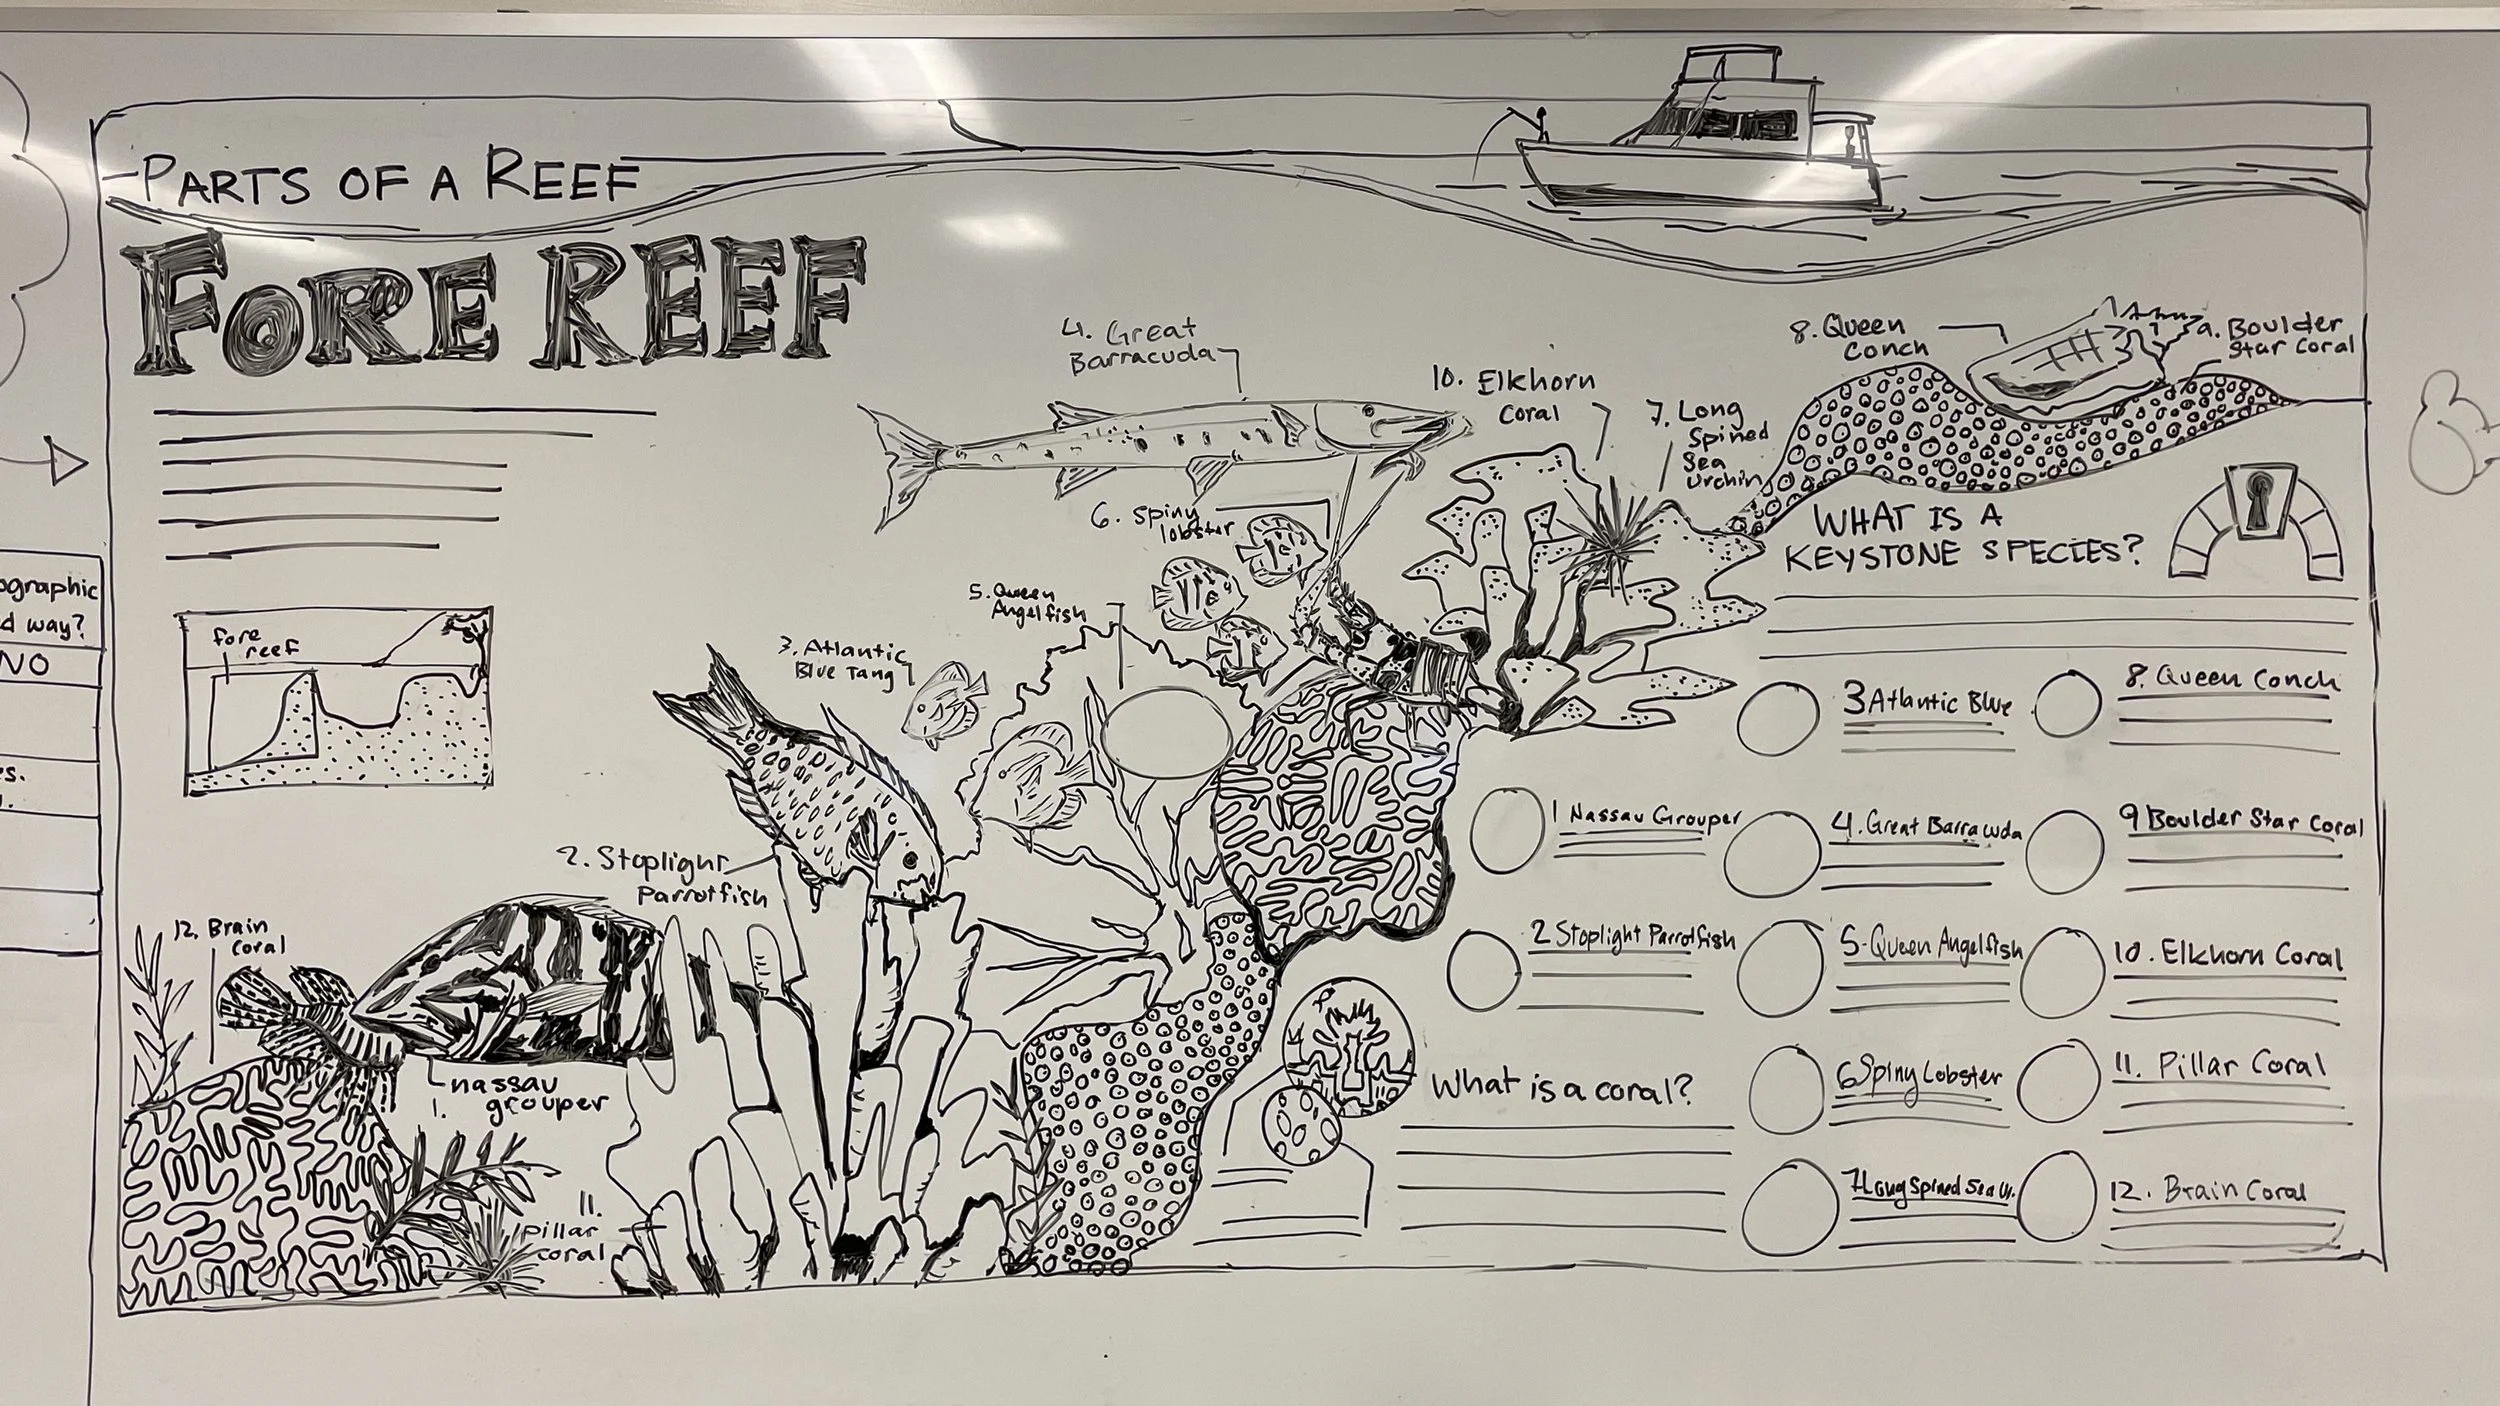 PARTS OF A REEF
FORE REEF
4. Great
Barracuda
8. Queen
Conch
9. Boulder
Star Coral
10. Elkhorn
Coral
7. Long
Spined
Sea
Urchin
6. Spiny
lobster
WHAT IS A
KEYSTONE SPECIES?
5. Queen
Angelfish
ographic
d way?
NO
fore
reef
3. Atlantic
Blue Tang
3 Atlantic Blue
8. Queen Conch
s.
1 Nassau Grouper
4. Great Barracuda
9 Boulder Star Coral
2. Stoplight
Parrotfish
12. Brain
Coral
2 Stoplight Parrotfish
5. Queen Angelfish
10. Elkhorn Coral
nassau
1. grouper
What is a coral?
6 Spiny Lobster
11. Pillar Coral
11.
pillar
coral
7. Long Spined Sea Ur.
12. Brain Coral